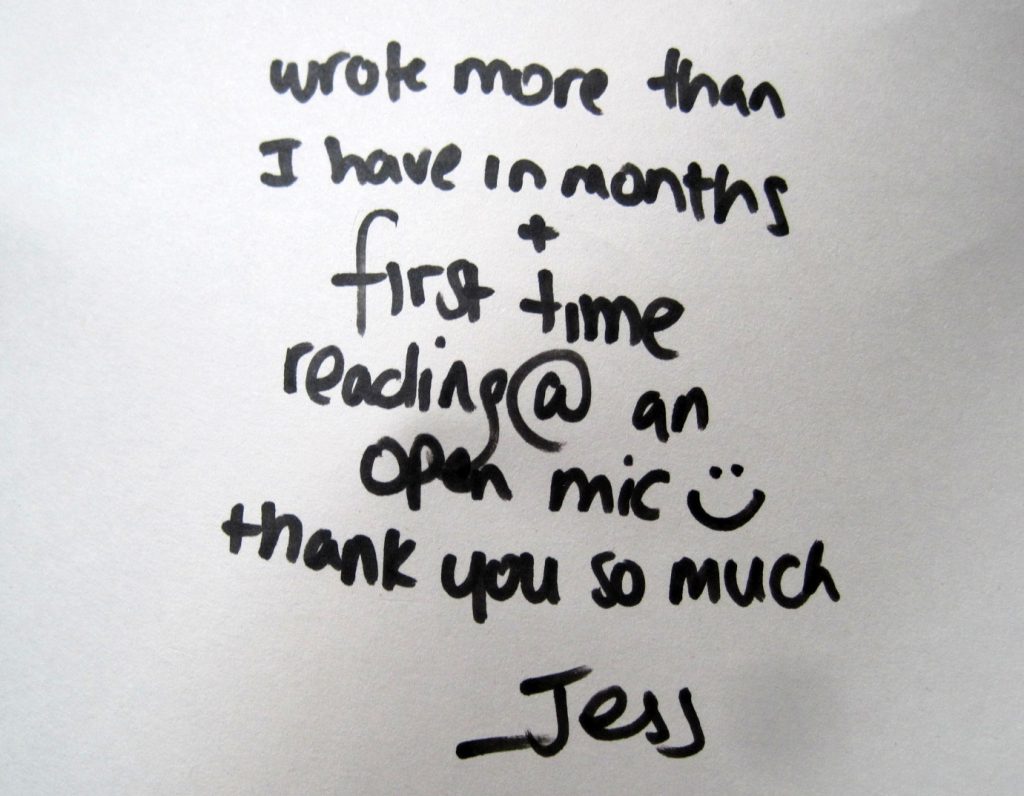 wrote more than
I have in months
+
first time
reading@ an
open mic :)
thank you so much
_Jess